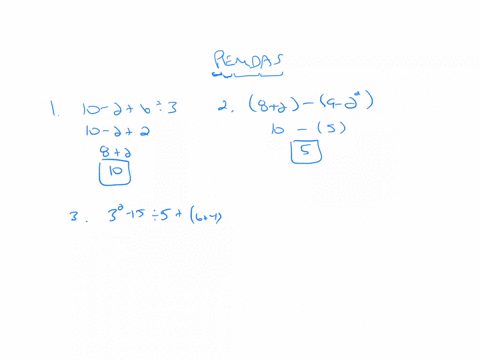 PEMDAS
1. 10-2+6÷3
10-2+2
8+2
10
2. (8+2)-(9-2²)
10 - (5)
5
3. 3²-15÷5+(6+4)